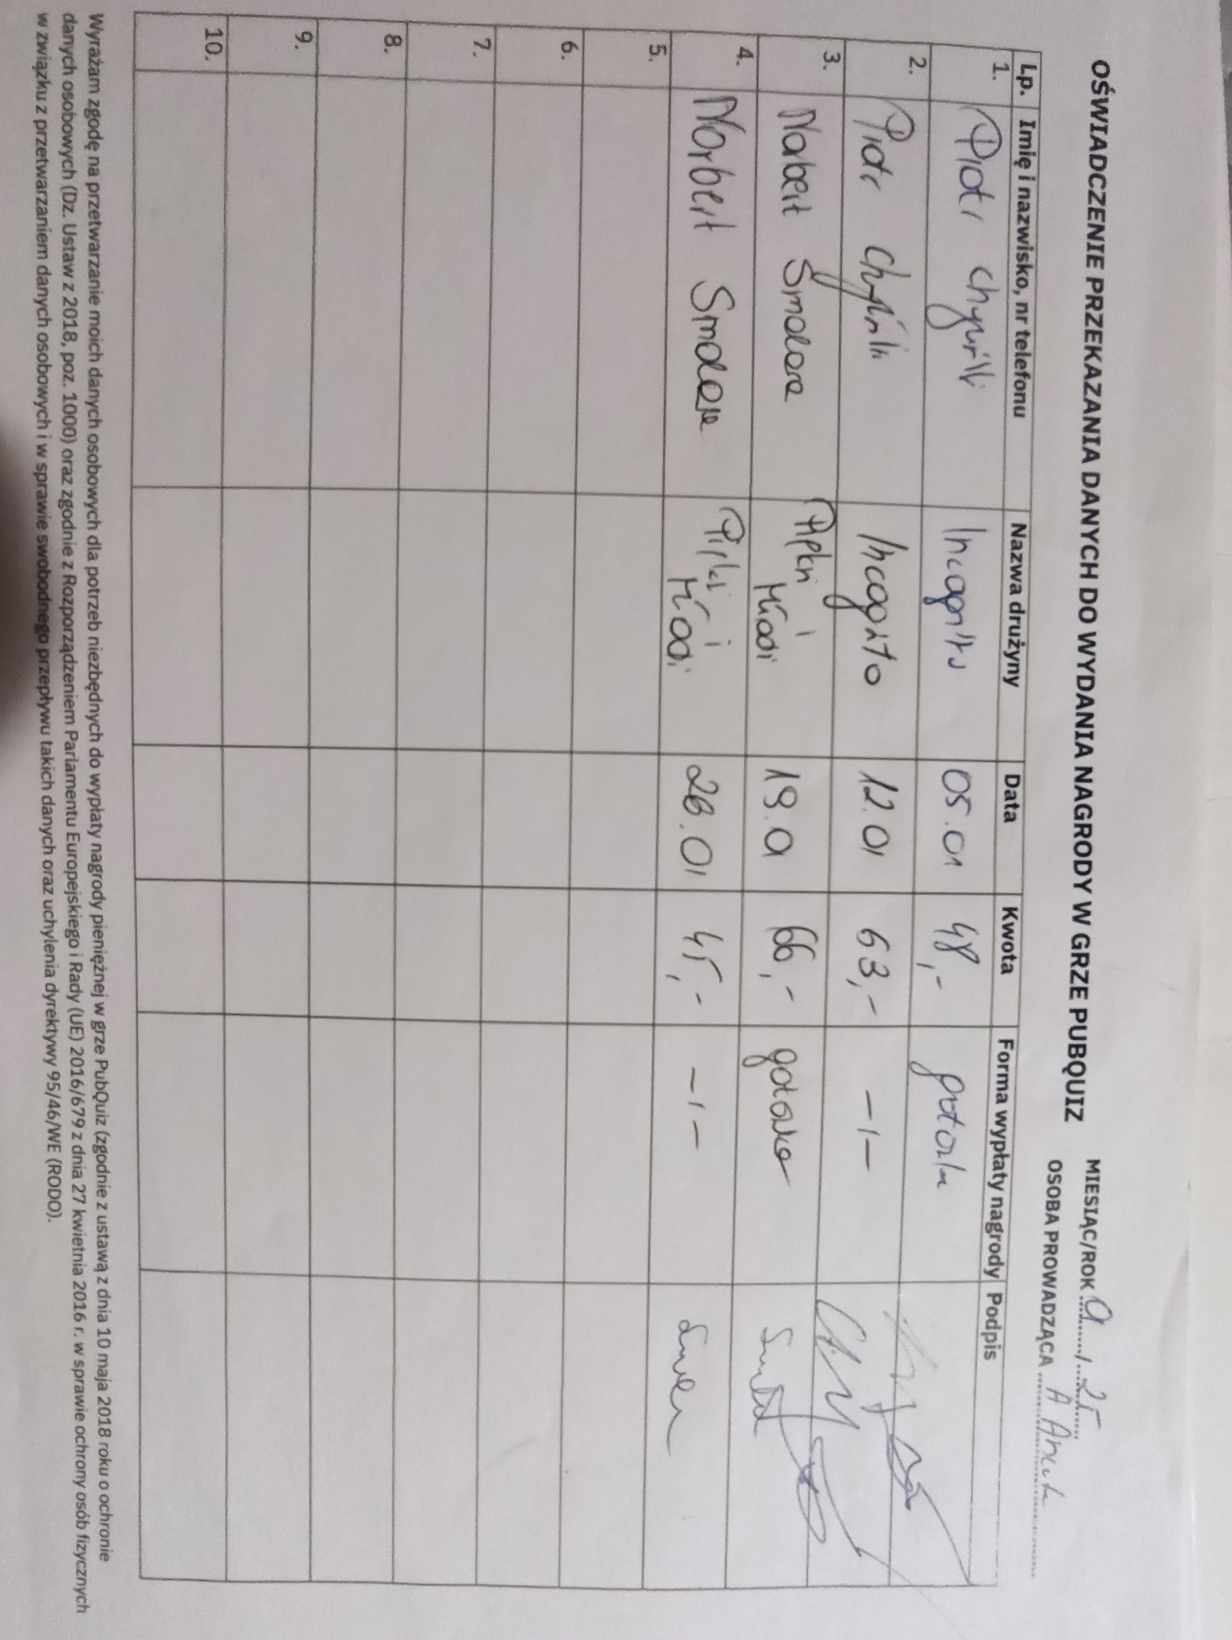 OŚWIADCZENIE PRZEKAZANIA DANYCH DO WYDANIA NAGRODY W GRZE PUBQUIZ
MIESIĄC/ROK 01 / 25
OSOBA PROWADZĄCA A
Lp. Imię i nazwisko, nr telefonu Nazwa drużyny Data Kwota Forma wypłaty nagrody Podpis
1. Piotr Incognito 05.01 48,- gotówka
2. Piotr Incognito 12.01 63,- -ı-
3. Norbert Smolera Piękni i Młodzi 19.01 66,- gotówka
4. Norbert i 26.01 45,- -ı-
5.
6.
7.
8.
9.
10.
Wyrażam zgodę na przetwarzanie moich danych osobowych dla potrzeb niezbędnych do wypłaty nagrody pieniężnej w grze PubQuiz (zgodnie z ustawą z dnia 10 maja 2018 roku o ochronie
danych osobowych (Dz. Ustaw z 2018, poz. 1000) oraz zgodnie z Rozporządzeniem Parlamentu Europejskiego i Rady (UE) 2016/679 z dnia 27 kwietnia 2016 r. w sprawie ochrony osób fizycznych
w związku z przetwarzaniem danych osobowych i w sprawie swobodnego przepływu takich danych oraz uchylenia dyrektywy 95/46/WE (RODO).